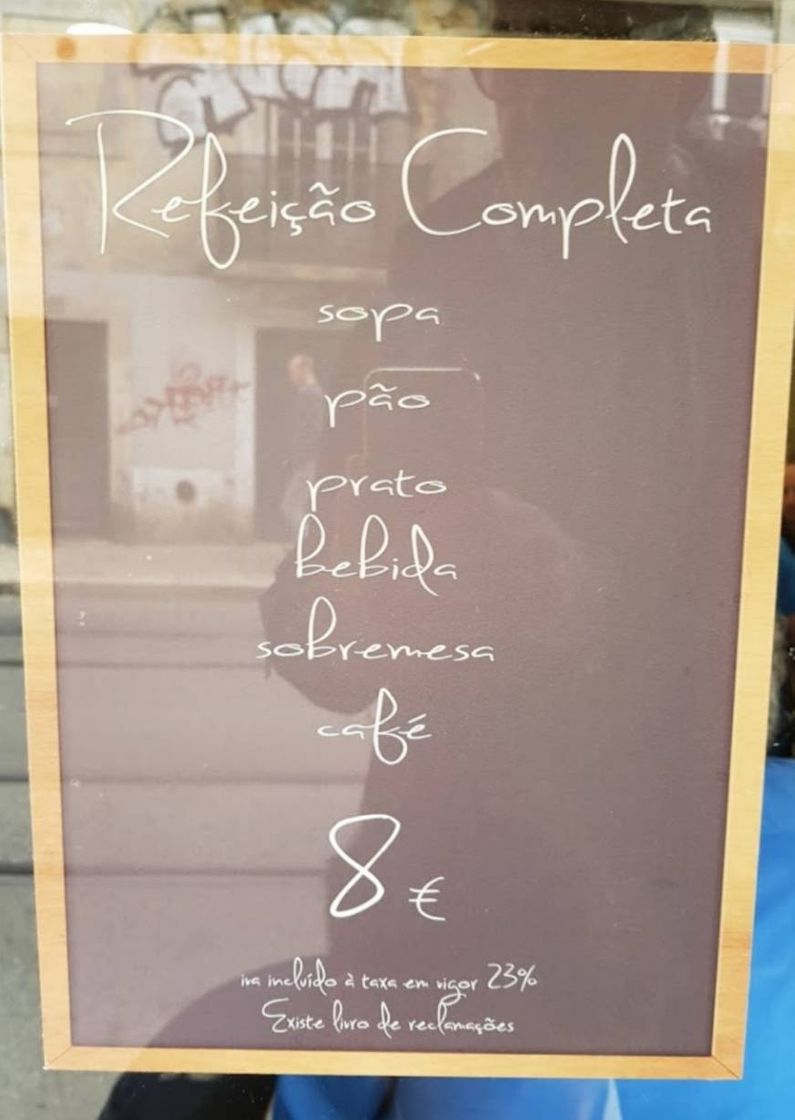 Refeição Completa
sopa
pão
prato
bebida
sobremesa
café
8 €
iva incluído à taxa em vigor 23%
Existe livro de reclamações